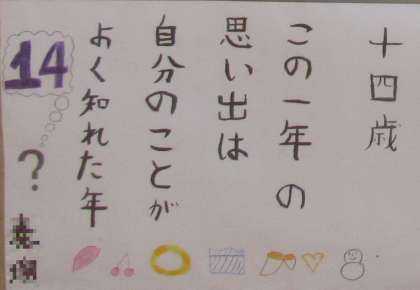 十四歳
この一年の
思い出は
自分のことが
よく知れた年
14
?